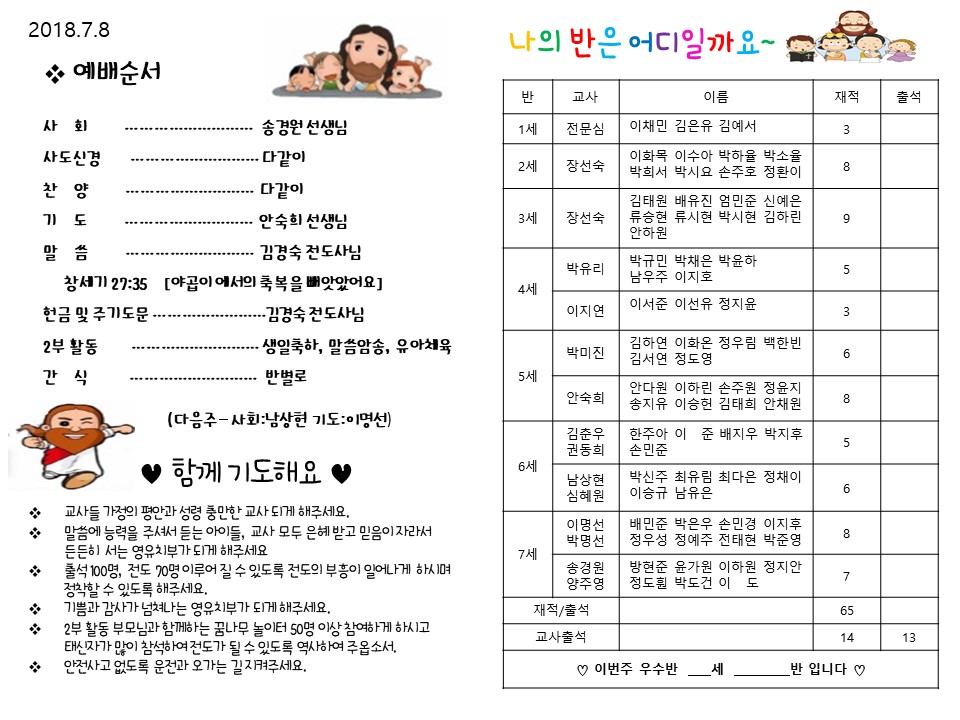 2018.7.8
❖ 예배순서
사 회 --------------------------- 송경원 선생님
사도신경 --------------------------- 다같이
찬 양 --------------------------- 다같이
기 도 --------------------------- 안숙희 선생님
말 씀 --------------------------- 김경숙 전도사님
창세기 27:35 [야곱이 에서의 축복을 빼앗았어요]
헌금 및 주기도문 ------------------------김경숙 전도사님
2부 활동 --------------------------- 생일축하, 말씀암송, 유아체육
간 식 --------------------------- 반별로
(다음주-사회:남상현 기도:이명선)
♥ 함께 기도해요 ♥
❖ 교사들 가정의 평안과 성령 충만한 교사 되게 해주세요.
❖ 말씀에 능력을 주셔서 듣는 아이들, 교사 모두 은혜 받고 믿음이 자라서
든든히 서는 영유치부가 되게 해주세요
❖ 출석 100명, 전도 70명 이루어 질 수 있도록 전도의 부흥이 일어나게 하시며
정착할 수 있도록 해주세요.
❖ 기쁨과 감사가 넘쳐나는 영유치부가 되게 해주세요.
❖ 2부 활동 부모님과 함께하는 꿈나무 놀이터 50명 이상 참여하게 하시고
태신자가 많이 참석하여 전도가 될 수 있도록 역사하여 주옵소서.
❖ 안전사고 없도록 운전과 오가는 길 지켜주세요.
나의 반은 어디일까요~
반 교사 이름 재적 출석
1세 전문심 이채민 김은유 김예서 3
2세 장선숙 이화목 이수아 박하율 박소율
박희서 박시요 손주호 정환이 8
3세 장선숙 김태원 배유진 엄민준 신예은
류승현 류시현 박시현 김하린
안하원 9
4세 박유리 박규민 박채은 박윤하
남우주 이지호 5
이지연 이서준 이선유 정지윤 3
5세 박미진 김하연 이화온 정우림 백한빈
김서연 정도영 6
안숙희 안다원 이하린 손주원 정윤지
송지유 이승헌 김태희 안채원 8
6세 김춘우 한주아 이 준 배지우 박지후
권동희 손민준 5
남상현 박신주 최유림 최다은 정채이
심혜원 이승규 남유은 6
7세 이명선 배민준 박은우 손민경 이지후
박명선 정우성 정예주 전태현 박준영 8
송경원 방현준 윤가원 이하원 정지안
양주영 정도훤 박도건 이 도 7
재적/출석 65
교사출석 14 13
♡ 이번주 우수반 ___세 ________반 입니다 ♡